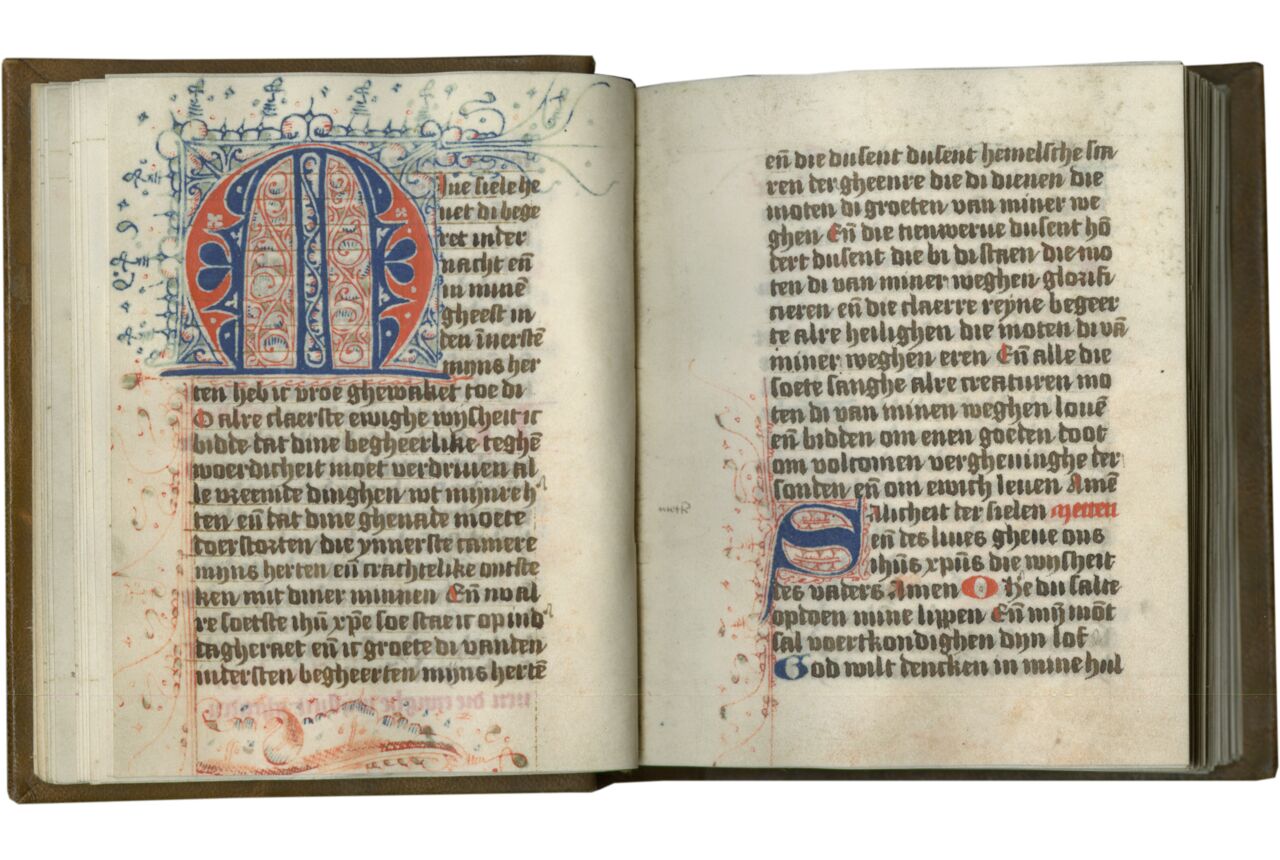 Mijne siele he
uet di bege
ret inder
nacht en̄
in minē
gheest in
den īnerstē
mijns her
ten heb ic vroe ghewaket toe di
O alre claerste ewighe wijsheit ic
bidde dat dine begheerlike teghē
woerdicheit moet verdriuen al
le vreemde dinghen wt mijnre h'
ten en̄ dat dine ghenade moete
doerstorten die ynnerste camere
mijns herten en̄ crachtelike ontste
ken met diner minnen En̄ nv al
re soetste ihū xp̄e soe stae ic op ind'
dagheraet en̄ ic groete di vanden
intersten begheerten mijns hertē
en̄ die dusent dusent hemelsche sca
ren dergheenre die di dienen die
moten di groeten van miner we
ghen En̄ die tienwerue dusent hō
dert dusent die bi di staen die mo
ten di van miner weghen glorifi
cieren en̄ die claerre reyne begeer
te alre heilighen die moten di vā
miner weghen eren En̄ alle die
soete sanghe alre creaturen mo
ten di van minen weghen louē
en̄ bidden om enen goeden doot
om volcomen vergheuinghe der
sonden en̄ om ewich leuen Amē
Salicheit der sielen metten
en̄ des liues gheue ons
ihūs xp̄us die wijsheit
des vaders Amen O he du salte
opdoen mine lippen En̄ mij mōt
sal voertkondighen dijn lof
God wilt dencken in mine hul